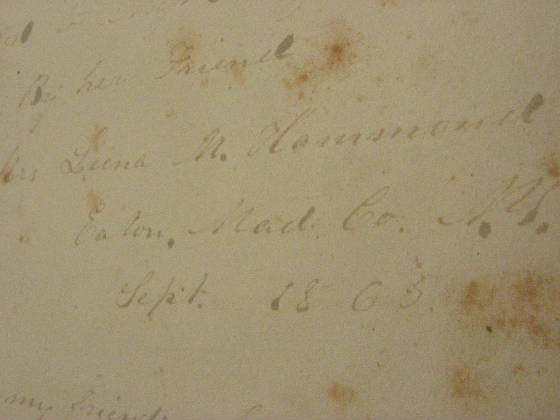 By her Friend
Mrs Luna M. Hammond
Eaton. Mad. Co. N.Y.
Sept. 1863.
my friend